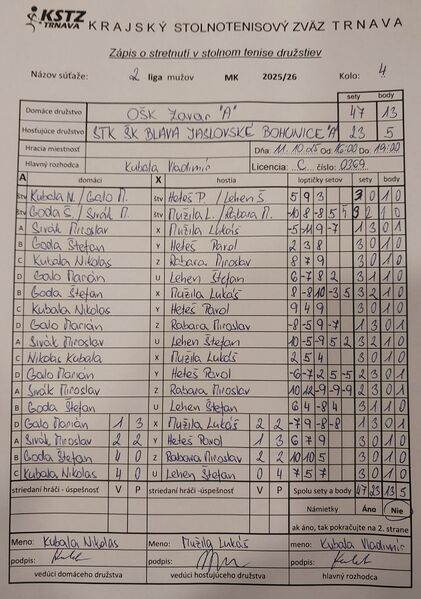 KSTZ TRNAVA KRAJSKÝ STOLNOTENISOVÝ ZVÄZ TRNAVA
Zápis o stretnutí v stolnom tenise družstiev
Názov súťaže: 2 liga mužov MK 2025/26 Kolo: 4
sety body
Domáce družstvo OŠK Zavar "A" 47 13
Hosťujúce družstvo STK ŠK BLAVA JASLOVSKÉ BOHUNICE "A" 23 5
Hracia miestnosť Dňa 11.10.25 Od 16:00 Do 19:00
Hlavný rozhodca Kubala Vladimír Licencia: C číslo: 0369
A domáci X hostia loptičky setov sety body
štv Kubala N. / Galo M. štv Heteš P. / Lehen Š 5 9 3 3 0 1 0
štv Goda Š. / Sivák M. štv Mužila L. / Rábara M. -10 8 -8 5 3 2 1 0
A Sivák Miroslav X Mužila Lukáš -5 11 -9 -7 1 3 0 1
B Goda Štefan Y Heteš Pavol 2 3 8 3 0 1 0
C Kubala Nikolas Z Rábara Miroslav 8 7 9 3 0 1 0
D Galo Marián U Lehen Štefan 6 -7 8 2 3 1 1 0
B Goda Štefan X Mužila Lukáš 8 -8 10 -3 5 3 2 1 0
C Kubala Nikolas Y Heteš Pavol 9 4 9 3 0 1 0
D Galo Marián Z Rabara Miroslav -8 -5 9 -7 1 3 0 1
A Sivák Miroslav U Lehen Štefan 10 -5 9 -5 2 3 2 1 0
C Nikolas Kubala X Mužila Lukáš 2 5 4 3 0 1 0
D Galo Marián Y Heteš Pavol -6 -7 2 5 -5 2 3 0 1
A Sivák Miroslav Z Rabara Miroslav 10 12 -9 -9 -9 2 3 0 1
B Goda Štefan U Lehen Štefan 6 4 -8 4 3 1 1 0
D Galo Marián 1 3 X Mužila Lukáš 2 2 -7 9 -8 -8 1 3 0 1
A Sivák Miroslav 2 2 Y Heteš Pavol 1 3 6 7 9 3 0 1 0
B Goda Štefan 4 0 Z Rabara Miroslav 2 2 10 10 5 3 0 1 0
C Kubala Nikolas 4 0 U Lehen Štefan 0 4 7 5 7 3 0 1 0
striedaní hráči - úspešnosť V P striedaní hráči - úspešnosť V P Spolu sety a body 47 23 13 5
Námietky Áno Nie
ak áno, tak pokračujte na 2. strane
Meno: Kubala Nikolas Meno: Mužila Lukáš meno: Kubala Vladimír
podpis: podpis: podpis:
vedúci domáceho družstva vedúci hosťujúceho družstva hlavný rozhodca